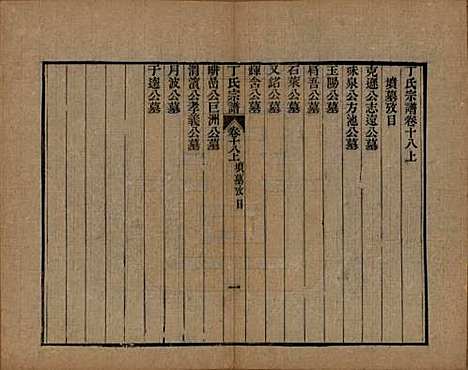 丁氏宗譜卷十八上
墳墓攷目
克遜公志遠公墓
味泉公方池公墓
王陽公墓
梧吾公墓
石葉公墓
又銘公墓
錬舍公墓
丁氏宗譜 卷十八上 墳墓攷目 一
畊嵒公巨洲公墓
潤濱公孝義公墓
月波公墓
子遠公墓